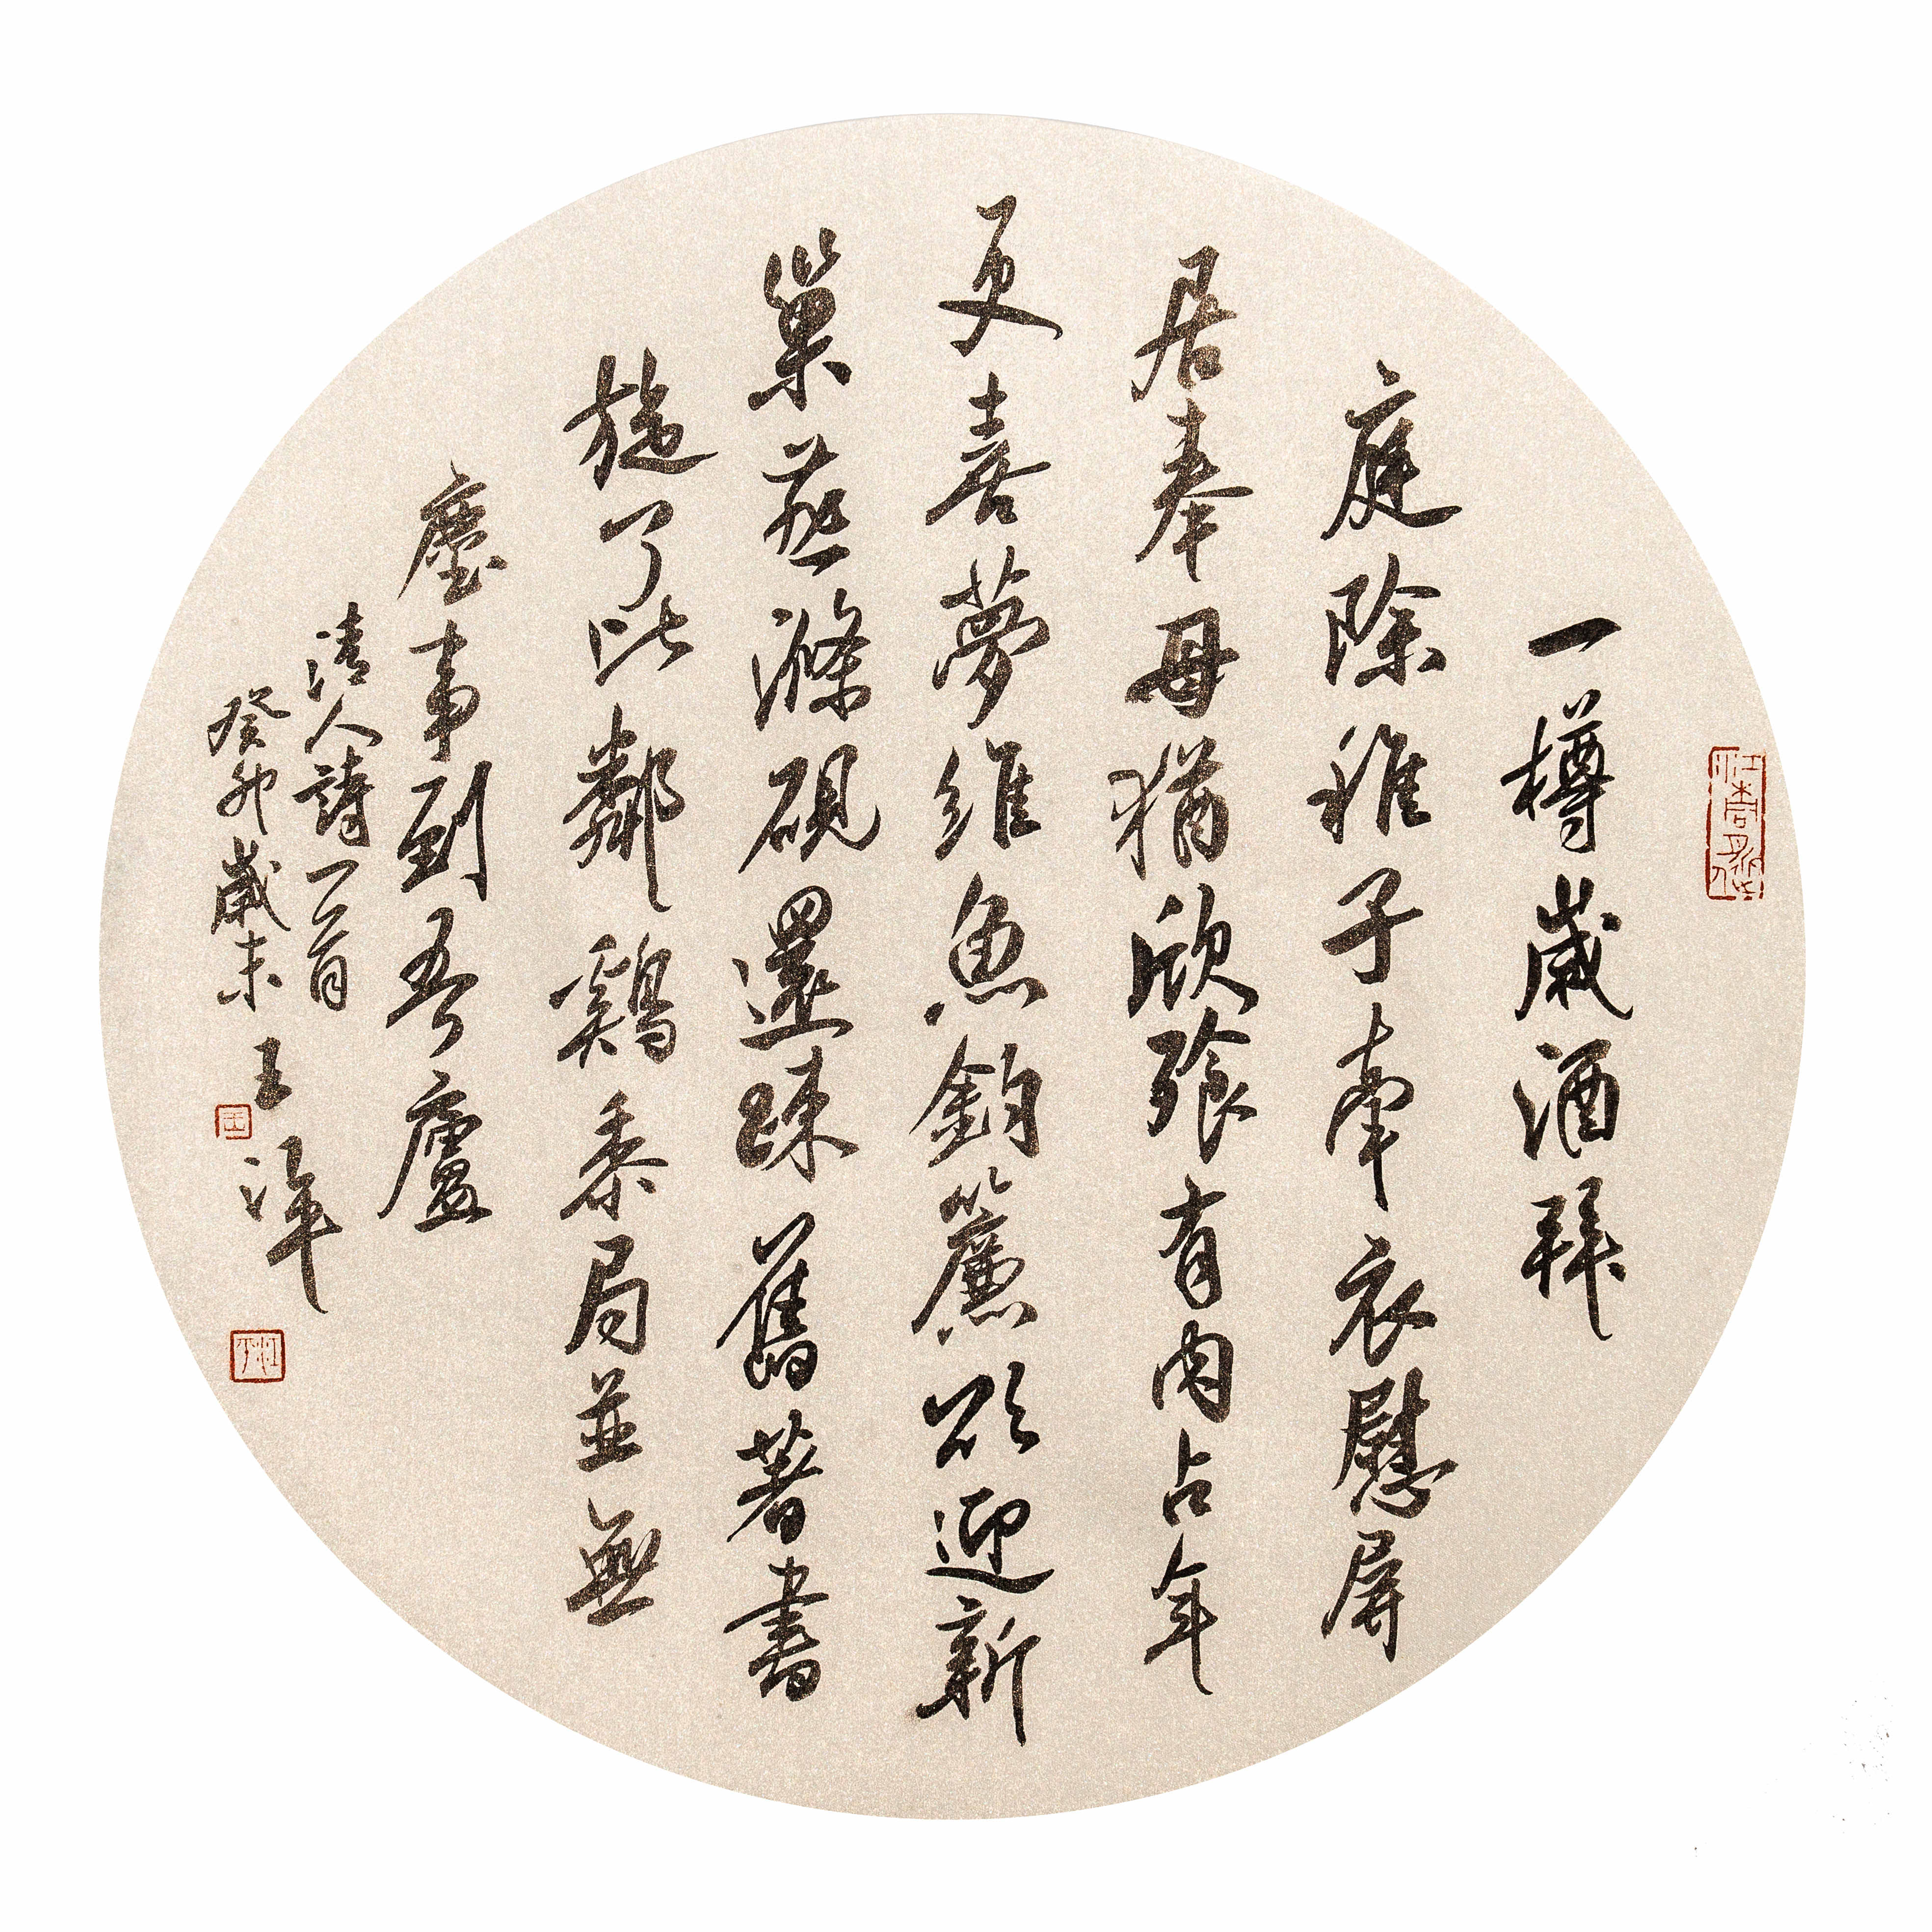 一樽歲酒拜
庭除稚子牽衣慰屏
居奉母猶欣飱有肉占年
更喜夢維魚鈎簾欲迎新
巢燕滌硯還踈舊著書
旋了比鄰鷄黍局並無
塵事到吾廬
清人詩一首
癸卯歲末王
王